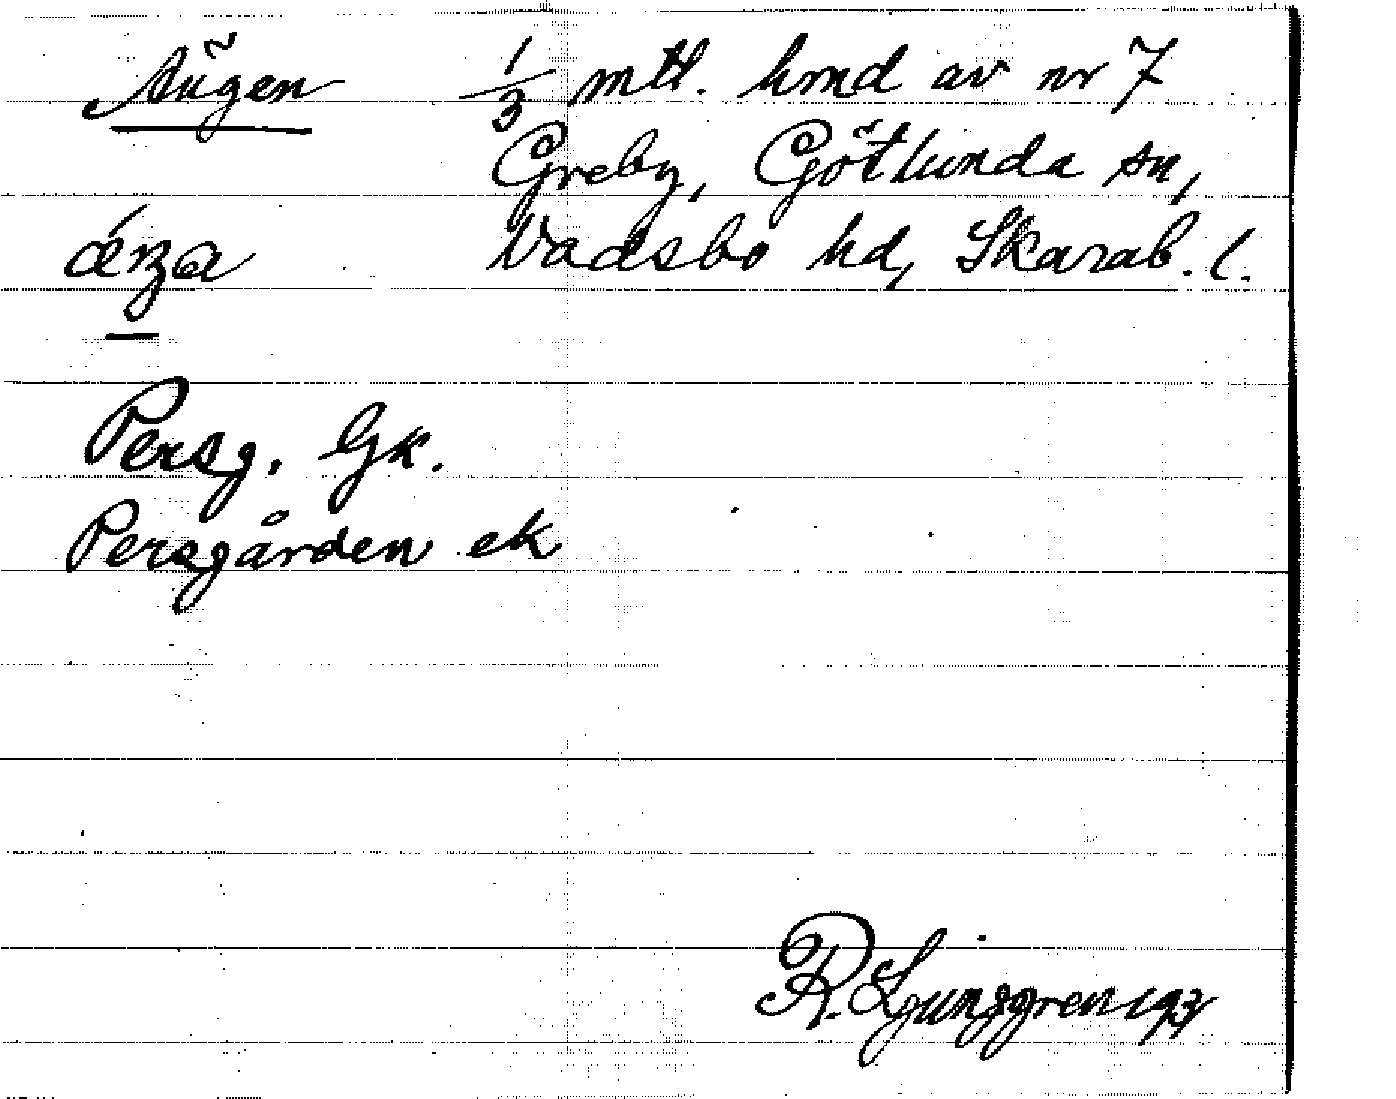 Ängen 1/3 mtl. hmd av nr 7
Greby, Götlunda sn,
Vadsbo hd, Skarab. l.
Persg. Gk.
Persgården ek
R. Ljunggren